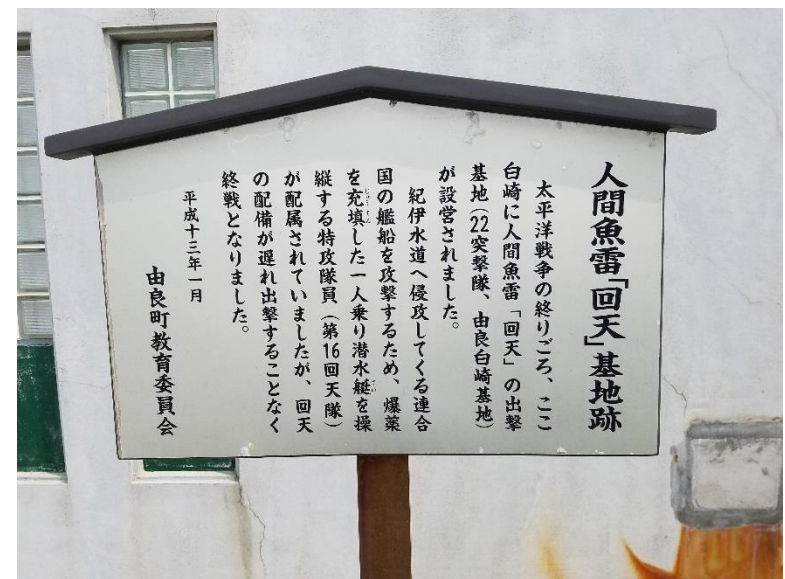 人間魚雷「回天」基地跡
太平洋戦争の終りごろ、ここ
白崎に人間魚雷「回天」の出撃
基地(22突撃隊、由良白崎基地)
が設営されました。
紀伊水道へ侵攻してくる連合
国の艦船を攻撃するため、爆薬
を充填した一人乗り潜水艇を操
縦する特攻隊員(第16回天隊)
が配属されていましたが、回天
の配備が遅れ出撃することなく
終戦となりました。
平成十三年一月
由良町教育委員会